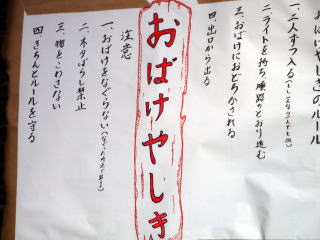 おばけやしきのルール
一、二人ずつ入る
二、ライトを持ち順路のとおり進む
三、おばけにおどろかされる
四、出口から出る
おばけやしき
注意
一、おばけをなぐらない
二、ネタばらし禁止
三、物をこわさない
四、きちんとルールを守る